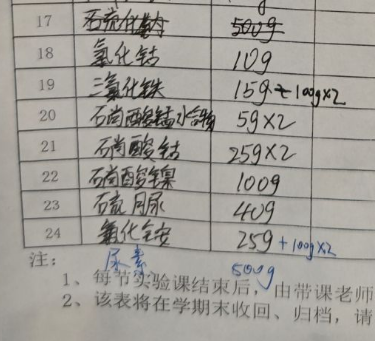 17 硫化钠 500g
18 氯化钴 10g
19 三氯化铁 15g+100g×2
20 硝酸锰水合物 5g×2
21 硝酸钴 25g×2
22 硝酸镍 100g
23 硫脲 40g
24 氯化铵 25g+100g×2
注： 尿素 500g
1、每节实验课结束后，由带课老师
2、该表将在学期末收回、归档，请